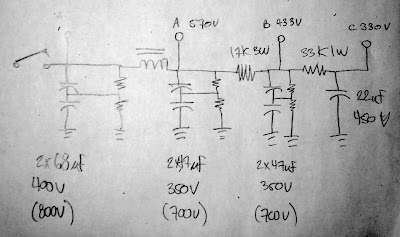 A 570V
B 433V
C 330V
33K 1W
22uF
450V
2x68uF
400V
(800V)
2x47uF
350V
(700V)
2x47uF
350V
(700V)